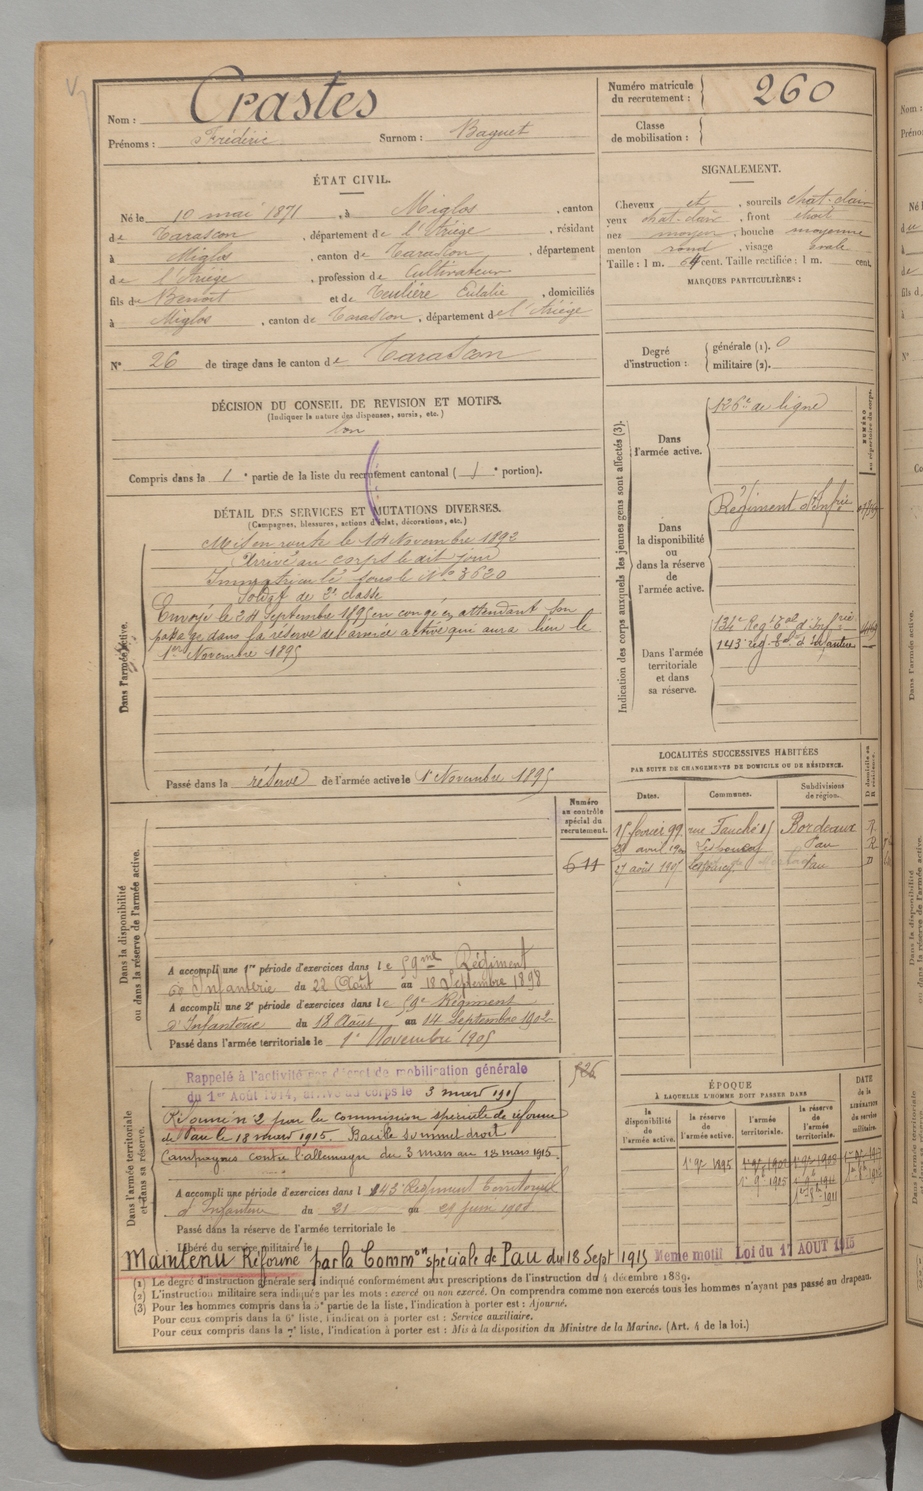 Nom : Crastes
Prénoms : Frédéric Surnom : Baguet
Numéro matricule du recrutement : 260
Classe de mobilisation :
ÉTAT CIVIL.
Né le 10 mai 1871, à Miglos, canton
de Tarascon, département de l'Ariège, résidant
à Miglos, canton de Tarascon, département
de l'Ariège, profession de Cultivateur
fils de Benoit et de Teulière Eulalie, domiciliés
à Miglos, canton de Tarascon, département de l'Ariège
N° 26 de tirage dans le canton de Tarascon
SIGNALEMENT.
Cheveux et, sourcils chat. clair
yeux chat. clair, front étroit
nez moyen, bouche moyenne
menton rond, visage ovale
Taille : 1 m. 64 cent. Taille rectifiée : 1 m. cent.
MARQUES PARTICULIÈRES :
Degré d'instruction : générale (1). 0
militaire (2).
DÉCISION DU CONSEIL DE REVISION ET MOTIFS.
(Indiquer la nature des dispenses, sursis, etc.)
bon
Compris dans la 1e partie de la liste du recrutement cantonal ( 1e portion).
DÉTAIL DES SERVICES ET MUTATIONS DIVERSES.
(Campagnes, blessures, actions d'éclat, décorations, etc.)
Dans l'armée active.
Mis en route le 14 Novembre 1892
Arrivé au corps le dit jour
Immatriculé sous le No 3620
Soldat de 2e classe
Envoyé le 24 Septembre 1895 en congé en attendant son
passage dans la réserve de l'armée active qui aura lieu le
1er Novembre 1895
Passé dans la réserve de l'armée active le 1r Novembre 1895
Indication des corps auxquels les jeunes gens sont affectés (3).
NUMÉRO au répertoire du corps.
Dans l'armée active.
126e de ligne
Dans la disponibilité ou dans la réserve de l'armée active.
Régiment d'Infrie
Dans l'armée territoriale et dans sa réserve.
134e Reg. Tal d'Infrie
143e rég. Tal d'Infanterie
LOCALITÉS SUCCESSIVES HABITÉES
PAR SUITE DE CHANGEMENTS DE DOMICILE OU DE RÉSIDENCE.
Dates. Communes. Subdivisions de région. D domicile ou R résidence.
15 février 99 rue Fauché 15 Bordeaux R.
avril Pau R
27 août 1905 Lespourcy Pau D
Dans la disponibilité ou dans la réserve de l'armée active.
Numéro au contrôle spécial du recrutement.
611
A accompli une 1re période d'exercices dans le 59me Régiment
d'Infanterie du 22 Août au 18 Septembre 1898
A accompli une 2e période d'exercices dans le 59e Régiment
d'Infanterie du 18 Août au 14 Septembre 1902
Passé dans l'armée territoriale le 1r Novembre 1905
Dans l'armée territoriale et dans sa réserve.
Rappelé à l'activité par décret de mobilisation générale
du 1er Août 1914, arrivé au corps le 3 mars 1915
Réformé n° 2 par la commission spéciale de réforme
de Pau le 18 mars 1915. Bacille sommet droit
Campagnes contre l'Allemagne du 3 mars au 18 mars 1915.
A accompli une période d'exercices dans l 143 Régiment Territorial
d'Infanterie du 21 au 29 juin 1908
Passé dans la réserve de l'armée territoriale le
Libéré du service militaire le
Maintenu Réformé par la Common spéciale de Pau du 18 Sept 1915 Meme motif Loi du 17 AOUT 1915
ÉPOQUE
À LAQUELLE L'HOMME DOIT PASSER DANS
DATE de la LIBÉRATION du service militaire.
la disponibilité de l'armée active. la réserve de l'armée active. l'armée territoriale. la réserve de l'armée territoriale.
1r 9e 1895
1r 9e 1905
(1) Le degré d'instruction générale sera indiqué conformément aux prescriptions de l'instruction du 4 décembre 1889.
(2) L'instruction militaire sera indiquée par les mots : exercé ou non exercé. On comprendra comme non exercés tous les hommes n'ayant pas passé au drapeau.
(3) Pour les hommes compris dans la 5e partie de la liste, l'indication à porter est : Ajourné.
Pour ceux compris dans la 6e liste, l'indication à porter est : Service auxiliaire.
Pour ceux compris dans la 7e liste, l'indication à porter est : Mis à la disposition du Ministre de la Marine. (Art. 4 de la loi.)